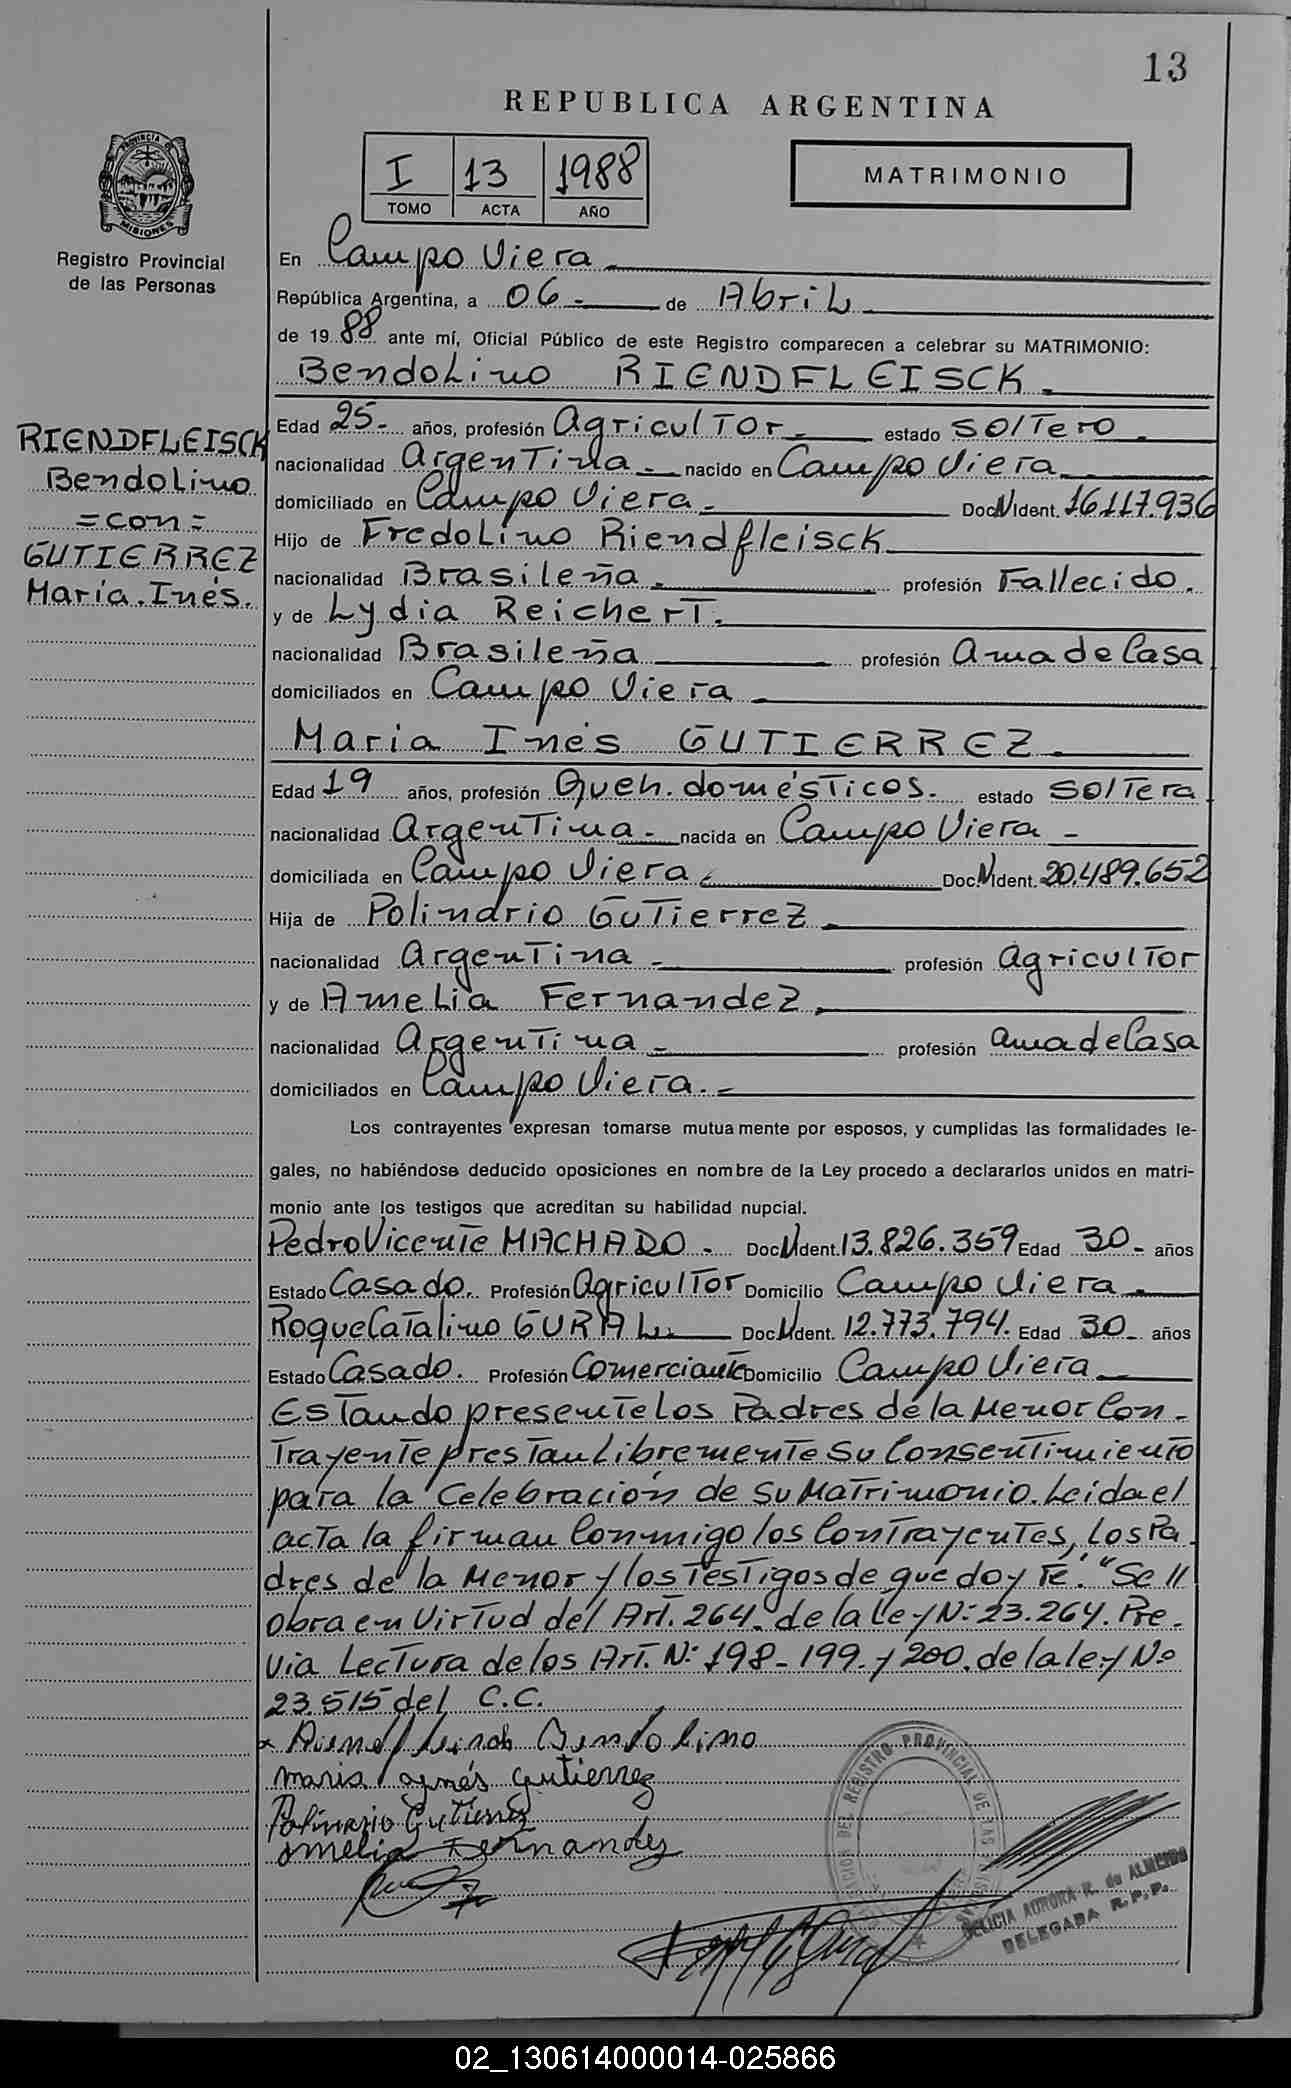 13
REPUBLICA ARGENTINA
PROVINCIA DE
MISIONES
Registro Provincial
de las Personas
I 13 1988
TOMO ACTA AÑO
MATRIMONIO
En Campo Viera
República Argentina, a 06 - de Abril
de 19 88 ante mí, Oficial Público de este Registro comparecen a celebrar su MATRIMONIO:
Bendolino RIENDFLEISCK.
RIENDFLEISCK
Bendolino
=con=
GUTIERREZ
María Inés.
Edad 25- años, profesión Agricultor - estado Soltero.
nacionalidad Argentina - nacido en Campo Viera
domiciliado en Campo Viera - Doc N Ident. 16.117.936
Hijo de Fredolino Riendfleisck
nacionalidad Brasileña. profesión Fallecido.
y de Lydia Reichert.
nacionalidad Brasileña profesión Ama de Casa
domiciliados en Campo Viera
Maria Inés GUTIERREZ
Edad 19 años, profesión Queh. domésticos. estado Soltera
nacionalidad Argentina - nacida en Campo Viera -
domiciliada en Campo Viera Doc. N Ident. 20.489.652
Hija de Polinario Gutierrez
nacionalidad Argentina - profesión Agricultor
y de Amelia Fernandez
nacionalidad Argentina - profesión Ama de Casa
domiciliados en Campo Viera. -
Los contrayentes expresan tomarse mutuamente por esposos, y cumplidas las formalidades le-
gales, no habiéndose deducido oposiciones en nombre de la Ley procedo a declararlos unidos en matri-
monio ante los testigos que acreditan su habilidad nupcial.
Pedro Vicente MACHADO. Doc N Ident. 13.826.359 Edad 30- años
Estado Casado. Profesión Agricultor Domicilio Campo Viera
Roque Catalino GURAL. Doc N Ident. 12.773.794. Edad 30- años
Estado Casado. Profesión Comerciante Domicilio Campo Viera
Estando presente los Padres de la Menor Con-
trayente prestan Libremente su Consentimiento
para la Celebración de su Matrimonio. Leida el
acta la firman Conmigo los Contrayentes, los Pa
dres de la Menor y los Testigos de que doy Fé. "Se //
obra en Virtud del Art. 264. de la Ley N: 23.264. Pre-
via Lectura de los Art. N: 198- 199- y 200. de la ley Nº
23.515 del C.C.
Bendolino
Maria Ynés Gutierrez
Polinario Gutierrez
Amelia Fernandez
DEL REGISTRO PROVINCIAL DE LAS
AURORA R. de ALMEIDA
DELEGADA R.P.P.
02_130614000014-025866